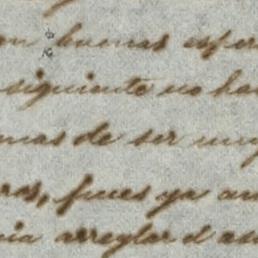 on buenas espe
siguiente no ha
mas de ser muy
ras, pues ya an
ia arreglar el as